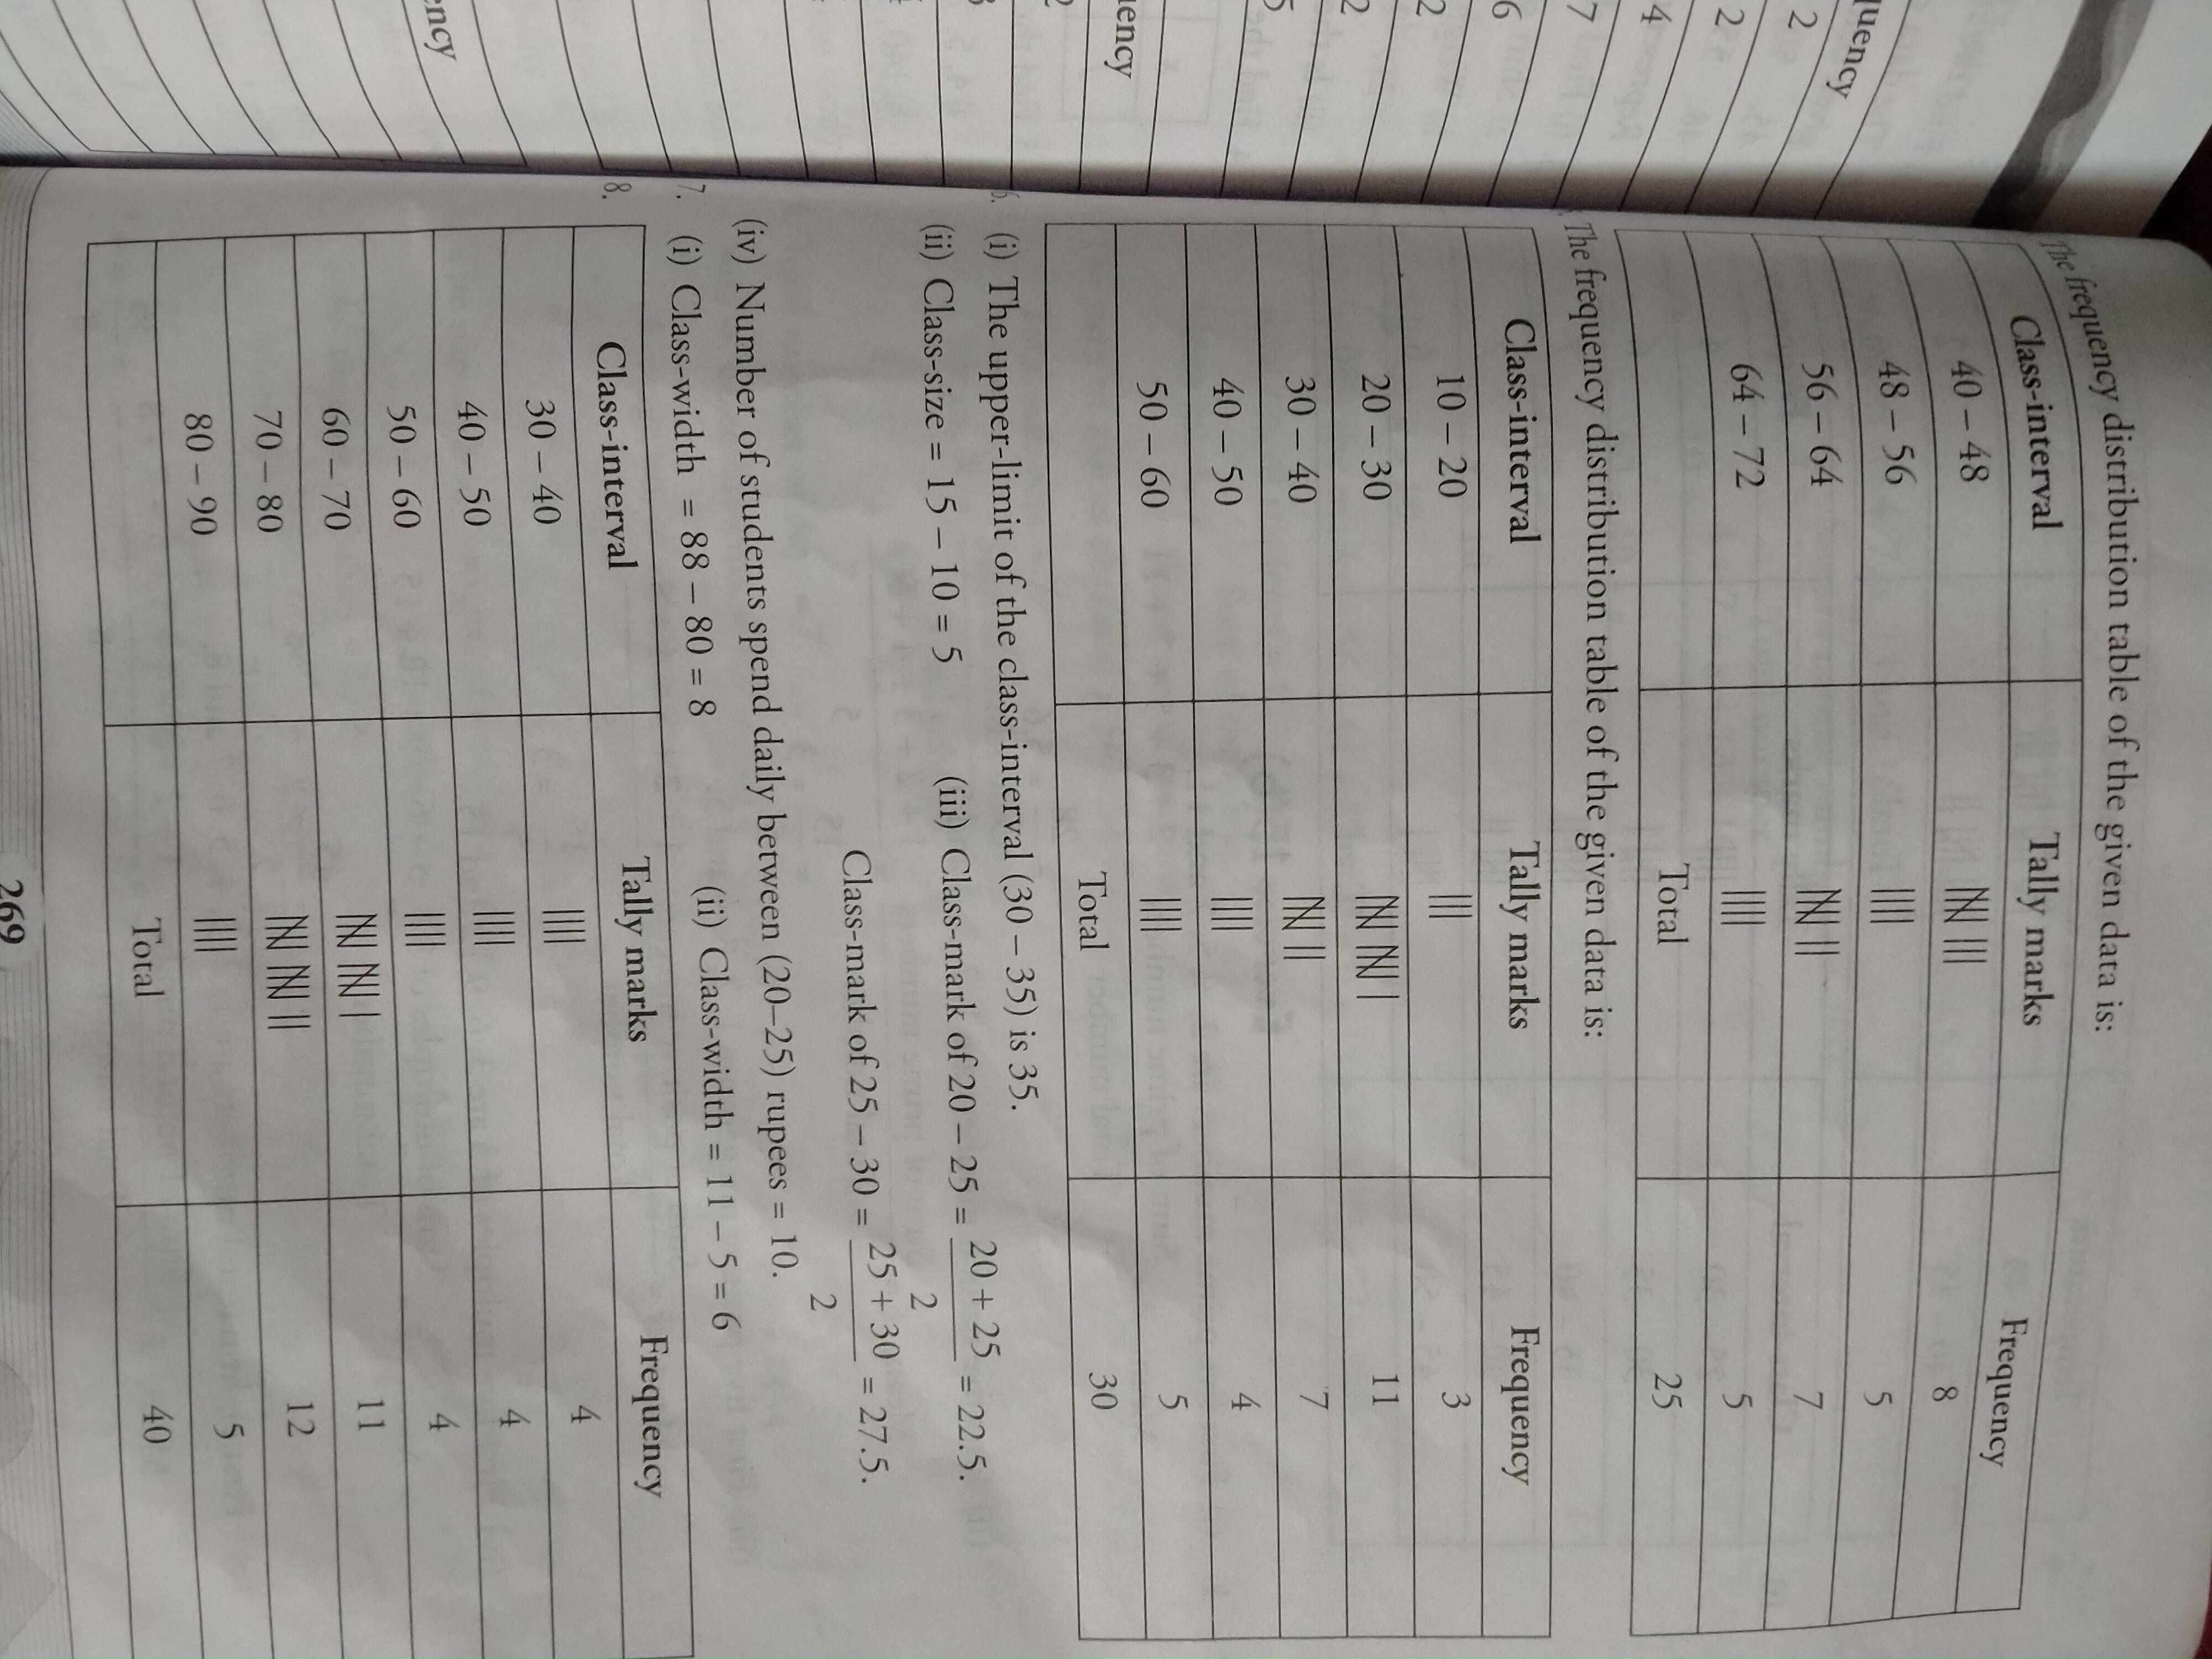 The frequency distribution table of the given data is:
Class-interval Tally marks Frequency
40 – 48 𝍸 ||| 8
48 – 56 ||||| 5
56 – 64 𝍸 || 7
64 – 72 ||||| 5
Total 25
The frequency distribution table of the given data is:
Class-interval Tally marks Frequency
10 – 20 ||| 3
20 – 30 𝍸 𝍸 | 11
30 – 40 𝍸 || 7
40 – 50 |||| 4
50 – 60 ||||| 5
Total 30
6. (i) The upper-limit of the class-interval (30 – 35) is 35.
(ii) Class-size = 15 – 10 = 5 (iii) Class-mark of 20 – 25 = 20 + 25 / 2 = 22.5.
Class-mark of 25 – 30 = 25 + 30 / 2 = 27.5.
(iv) Number of students spend daily between (20–25) rupees = 10.
7. (i) Class-width = 88 – 80 = 8 (ii) Class-width = 11 – 5 = 6
8.
Class-interval Tally marks Frequency
30 – 40 |||| 4
40 – 50 |||| 4
50 – 60 |||| 4
60 – 70 𝍸 𝍸 | 11
70 – 80 𝍸 𝍸 || 12
80 – 90 ||||| 5
Total 40
269